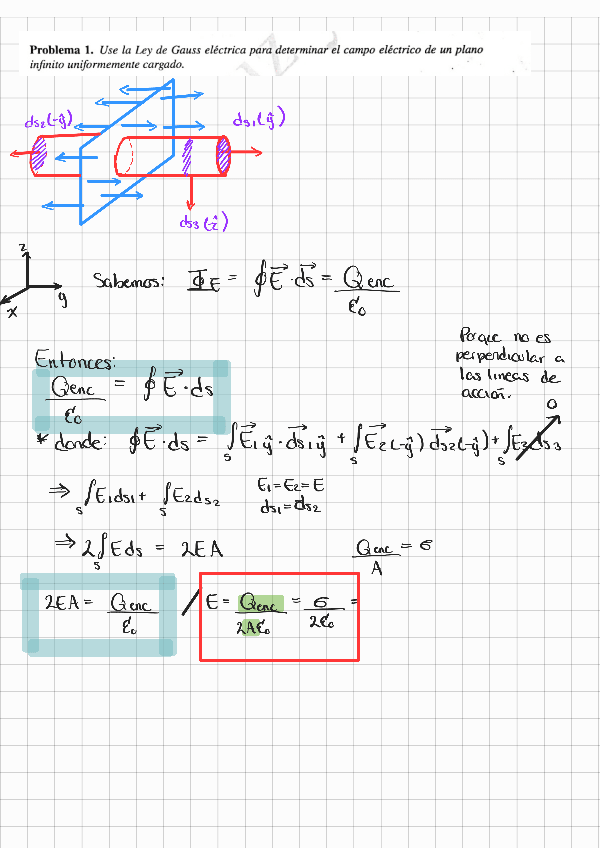 Problema 1. Use la Ley de Gauss eléctrica para determinar el campo eléctrico de un plano
infinito uniformemente cargado.
ds₂(-ŷ)
ds₁(ŷ)
ds₃(-ẑ)
z
y
x
Sabemos: Φ_E = ∮E⃗·ds⃗ = Qenc/ε₀
Porque no es
perpendicular a
las lineas de
acción.
Entonces:
Qenc/ε₀ = ∮E⃗·ds
0
* donde: ∮E⃗·ds = ∫_s E⃗₁ŷ·ds⃗₁ŷ + ∫_s E⃗₂(-ŷ) ds⃗₂(-ŷ) + ∫_s E₃ds₃
⇒ ∫_s E₁ds₁ + ∫_s E₂ds₂
E₁=E₂=E
ds₁=ds₂
⇒ 2∫_s Eds = 2EA
Qenc/A = σ
2EA = Qenc/ε₀
/ E = Qenc/2Aε₀ = σ/2ε₀ =